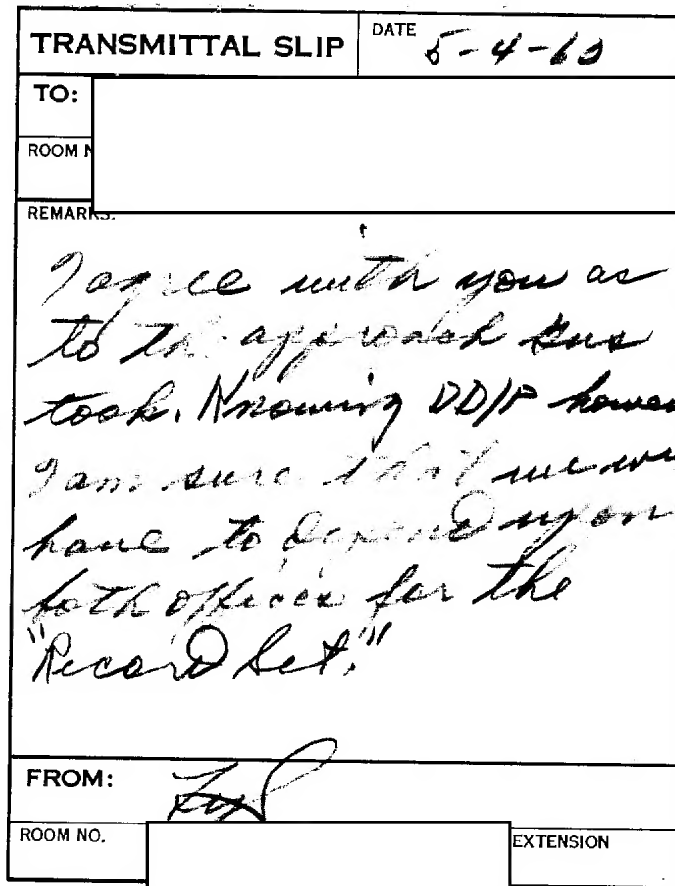 TRANSMITTAL SLIP
DATE 5-4-60
TO:
ROOM N
REMARKS:
I agree with you as
to the approach
took. Knowing DD/P howev
I am sure that we wi
have to depend upon
both offices for the
"Record Set."
FROM:
ROOM NO.
EXTENSION